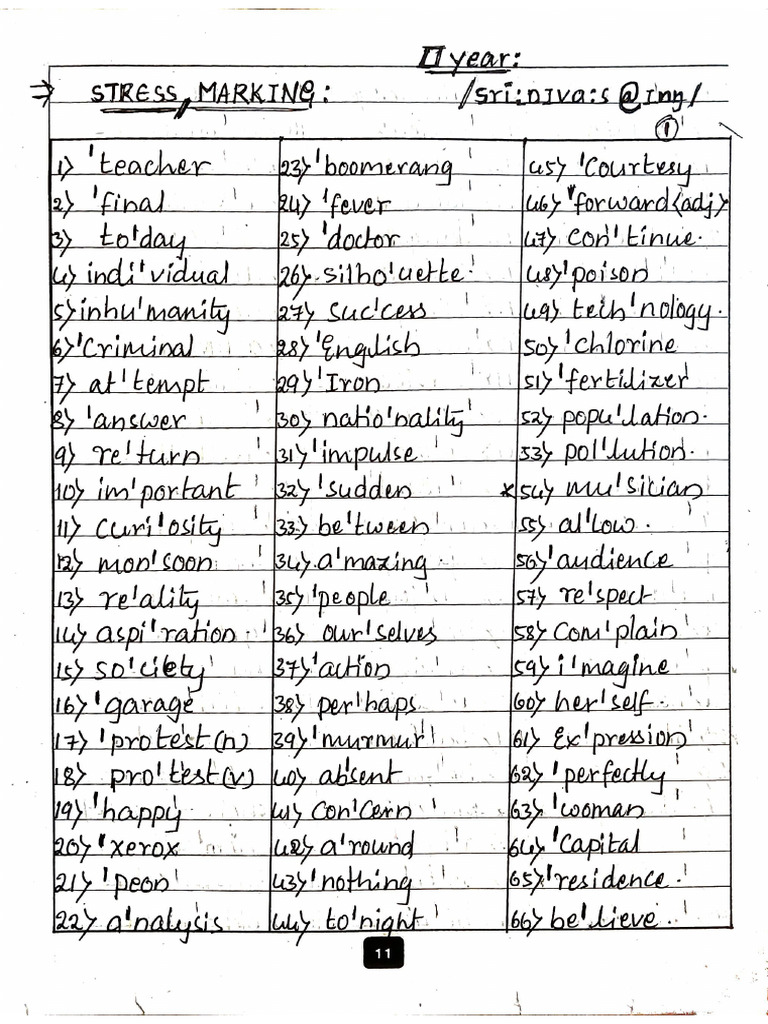 II year:
⇒ STRESS MARKING: /sri:nIva:s @Iŋg/
①
1) 'teacher
2) 'final
3) to'day
4) indi'vidual
5) inhu'manity
6) 'Criminal
7) at'tempt
8) 'answer
9) re'turn
10) im'portant
11) curi'osity
12) mon'soon
13) re'ality
14) aspi'ration
15) so'ciety
16) 'garage
17) 'protest(n)
18) pro'test(v)
19) 'happy
20) 'xerox
21) 'peon
22) a'nalysis
23) 'boomerang
24) 'fever
25) 'doctor
26) silho'uette
27) suc'cess
28) 'English
29) 'Iron
30) natio'nality
31) 'impulse
32) 'sudden
33) be'tween
34) a'mazing
35) 'people
36) our'selves
37) 'action
38) per'haps
39) 'murmur
40) absent
41) con'cern
42) a'round
43) 'nothing
44) to'night
45) 'Courtesy
46) 'forward(adj)
47) con'tinue
48) 'poison
49) tech'nology
50) 'chlorine
51) 'fertilizer
52) popu'lation
53) pol'lution
*54) mu'sician
55) al'low
56) 'audience
57) re'spect
58) com'plain
59) i'magine
60) her'self
61) Ex'pression
62) 'perfectly
63) 'woman
64) 'Capital
65) 'residence
66) be'lieve
11